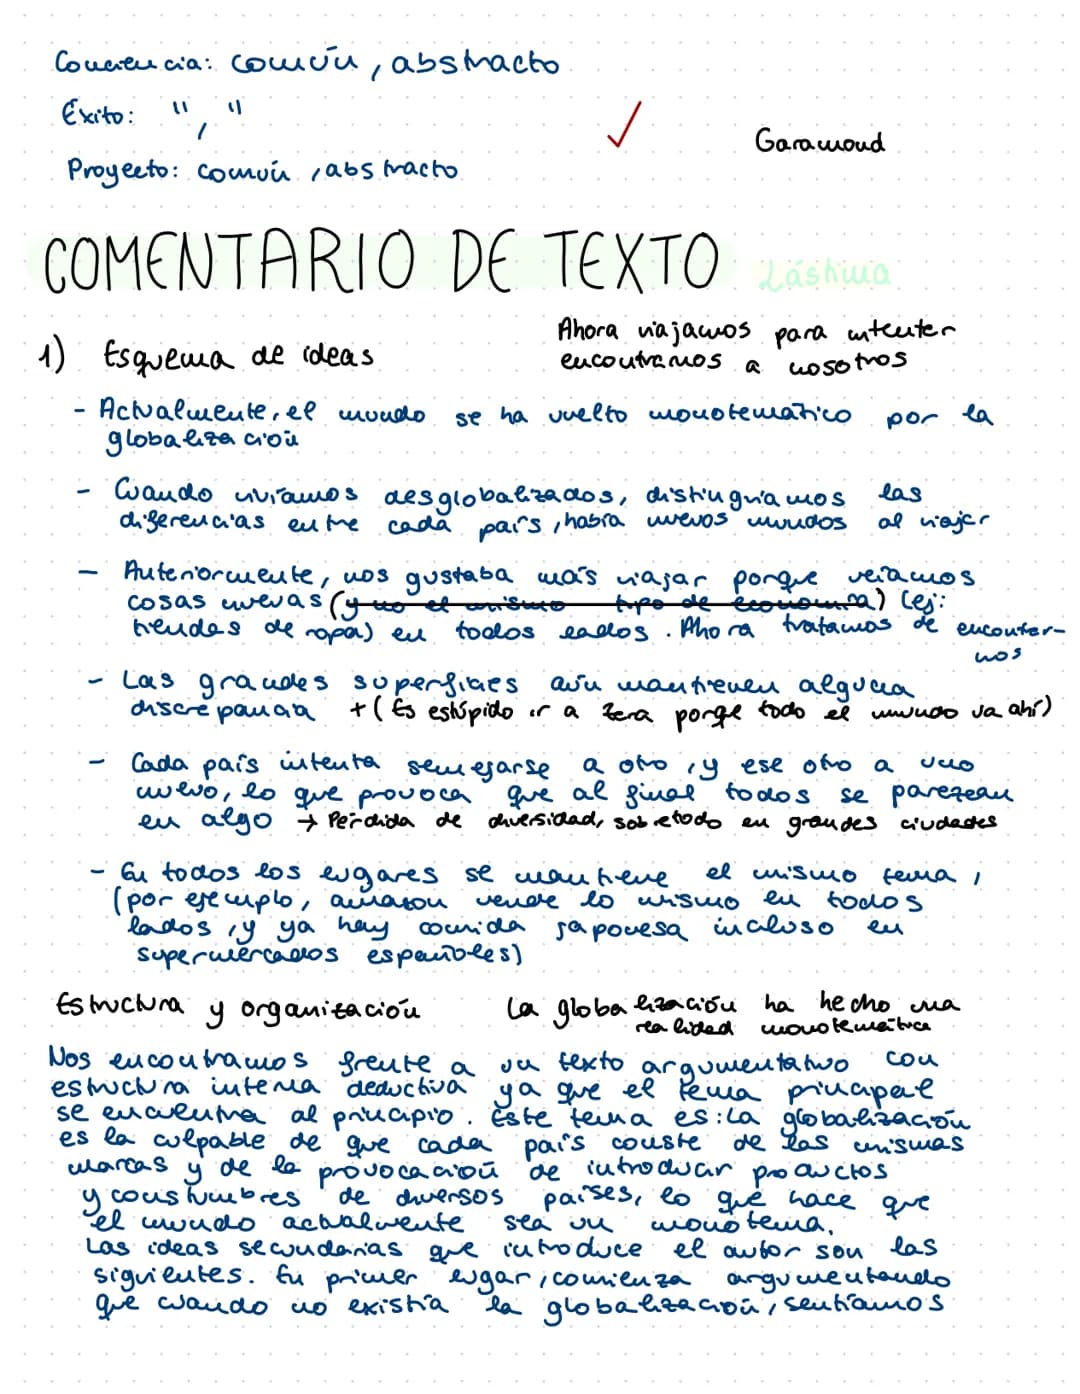 Conciencia: común, abstracto
Éxito: ", "
Proyecto: común, abstracto
Garamond
COMENTARIO DE TEXTO Lástima
Ahora viajamos para intenter
encontrarnos a nosotros
1) Esquema de ideas
- Actualmente, el mundo se ha vuelto monotemático por la
globalización
- Cuando vivíamos desglobalizados, distinguíamos las
diferencias entre cada país, había nuevos mundos al viajar
- Anteriormente, nos gustaba más viajar porque veíamos
cosas nuevas (y no el mismo tipo de economía) (ej:
tiendas de ropa) en todos lados. Ahora tratamos de encontar-
nos
- Las grandes superficies aún mantienen alguna
discrepancia + (Es estúpido ir a Zara porqe todo el mundo va ahí)
- Cada país intenta semejarse a otro, y ese otro a uno
nuevo, lo que provoca que al final todos se parezean
en algo → Pérdida de diversidad, sobretodo en grandes ciudades
- En todos los lugares se mantiene el mismo tema,
(por ejemplo, amazon vende lo mismo en todos
lados, y ya hay comida japonesa incluso en
supermercados españoles)
Estructura y organización
La globalización ha hecho una
realidad monotemática
Nos encontramos frente a un texto argumentativo con
estructura interna deductiva ya que el tema principal
se encuentra al principio. Este tema es: La globalización
es la culpable de que cada país conste de las mismas
marcas y de la provocación de introducir productos
y constumbres de diversos países, lo que hace que
el mundo actualmente sea un monotema.
Las ideas secundarias que introduce el autor son las
siguientes. En primer lugar, comienza argumentando
que cuando no existía la globalización, sentíamos